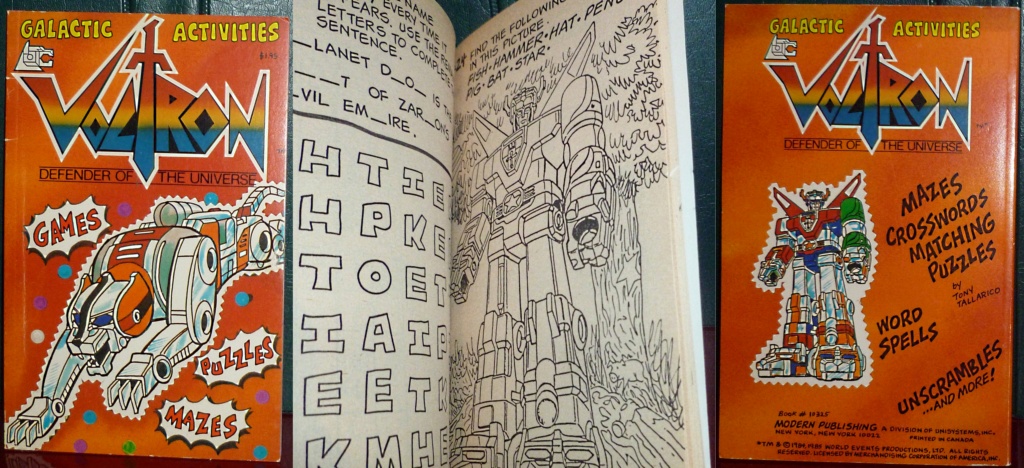 GALACTIC ACTIVITIES
$1.95
VOLTRON
DEFENDER OF THE UNIVERSE
GAMES
PUZZLES
MAZES
NAME
EVERY TIME IT
EARS, USE THE RE
LETTERS TO COMPLET
SENTENCE.
LANET D_O_ IS
__T OF ZAR_ONS
VIL EM_IRE.
H T I E
H P K E
T O E T
I A I P
E E T K
K M H E
FIND THE FOLLOWING
IN THIS PICTURE:
FISH·HAMMER·HAT·PENC
PIG·BAT·STAR·
GALACTIC ACTIVITIES
VOLTRON
DEFENDER OF THE UNIVERSE
MAZES
CROSSWORDS
MATCHING
PUZZLES
by
TONY
TALLARICO
WORD
SPELLS
UNSCRAMBLES
...AND MORE!
BOOK # 10325
MODERN PUBLISHING A DIVISION OF UNISYSTEMS, INC.
NEW YORK, NEW YORK 10022
PRINTED IN CANADA
*TM & © 1984, 1985 WORLD EVENTS PRODUCTIONS, LTD. ALL RIGHTS
RESERVED. LICENSED BY MERCHANDISING CORPORATION OF AMERICA, INC.